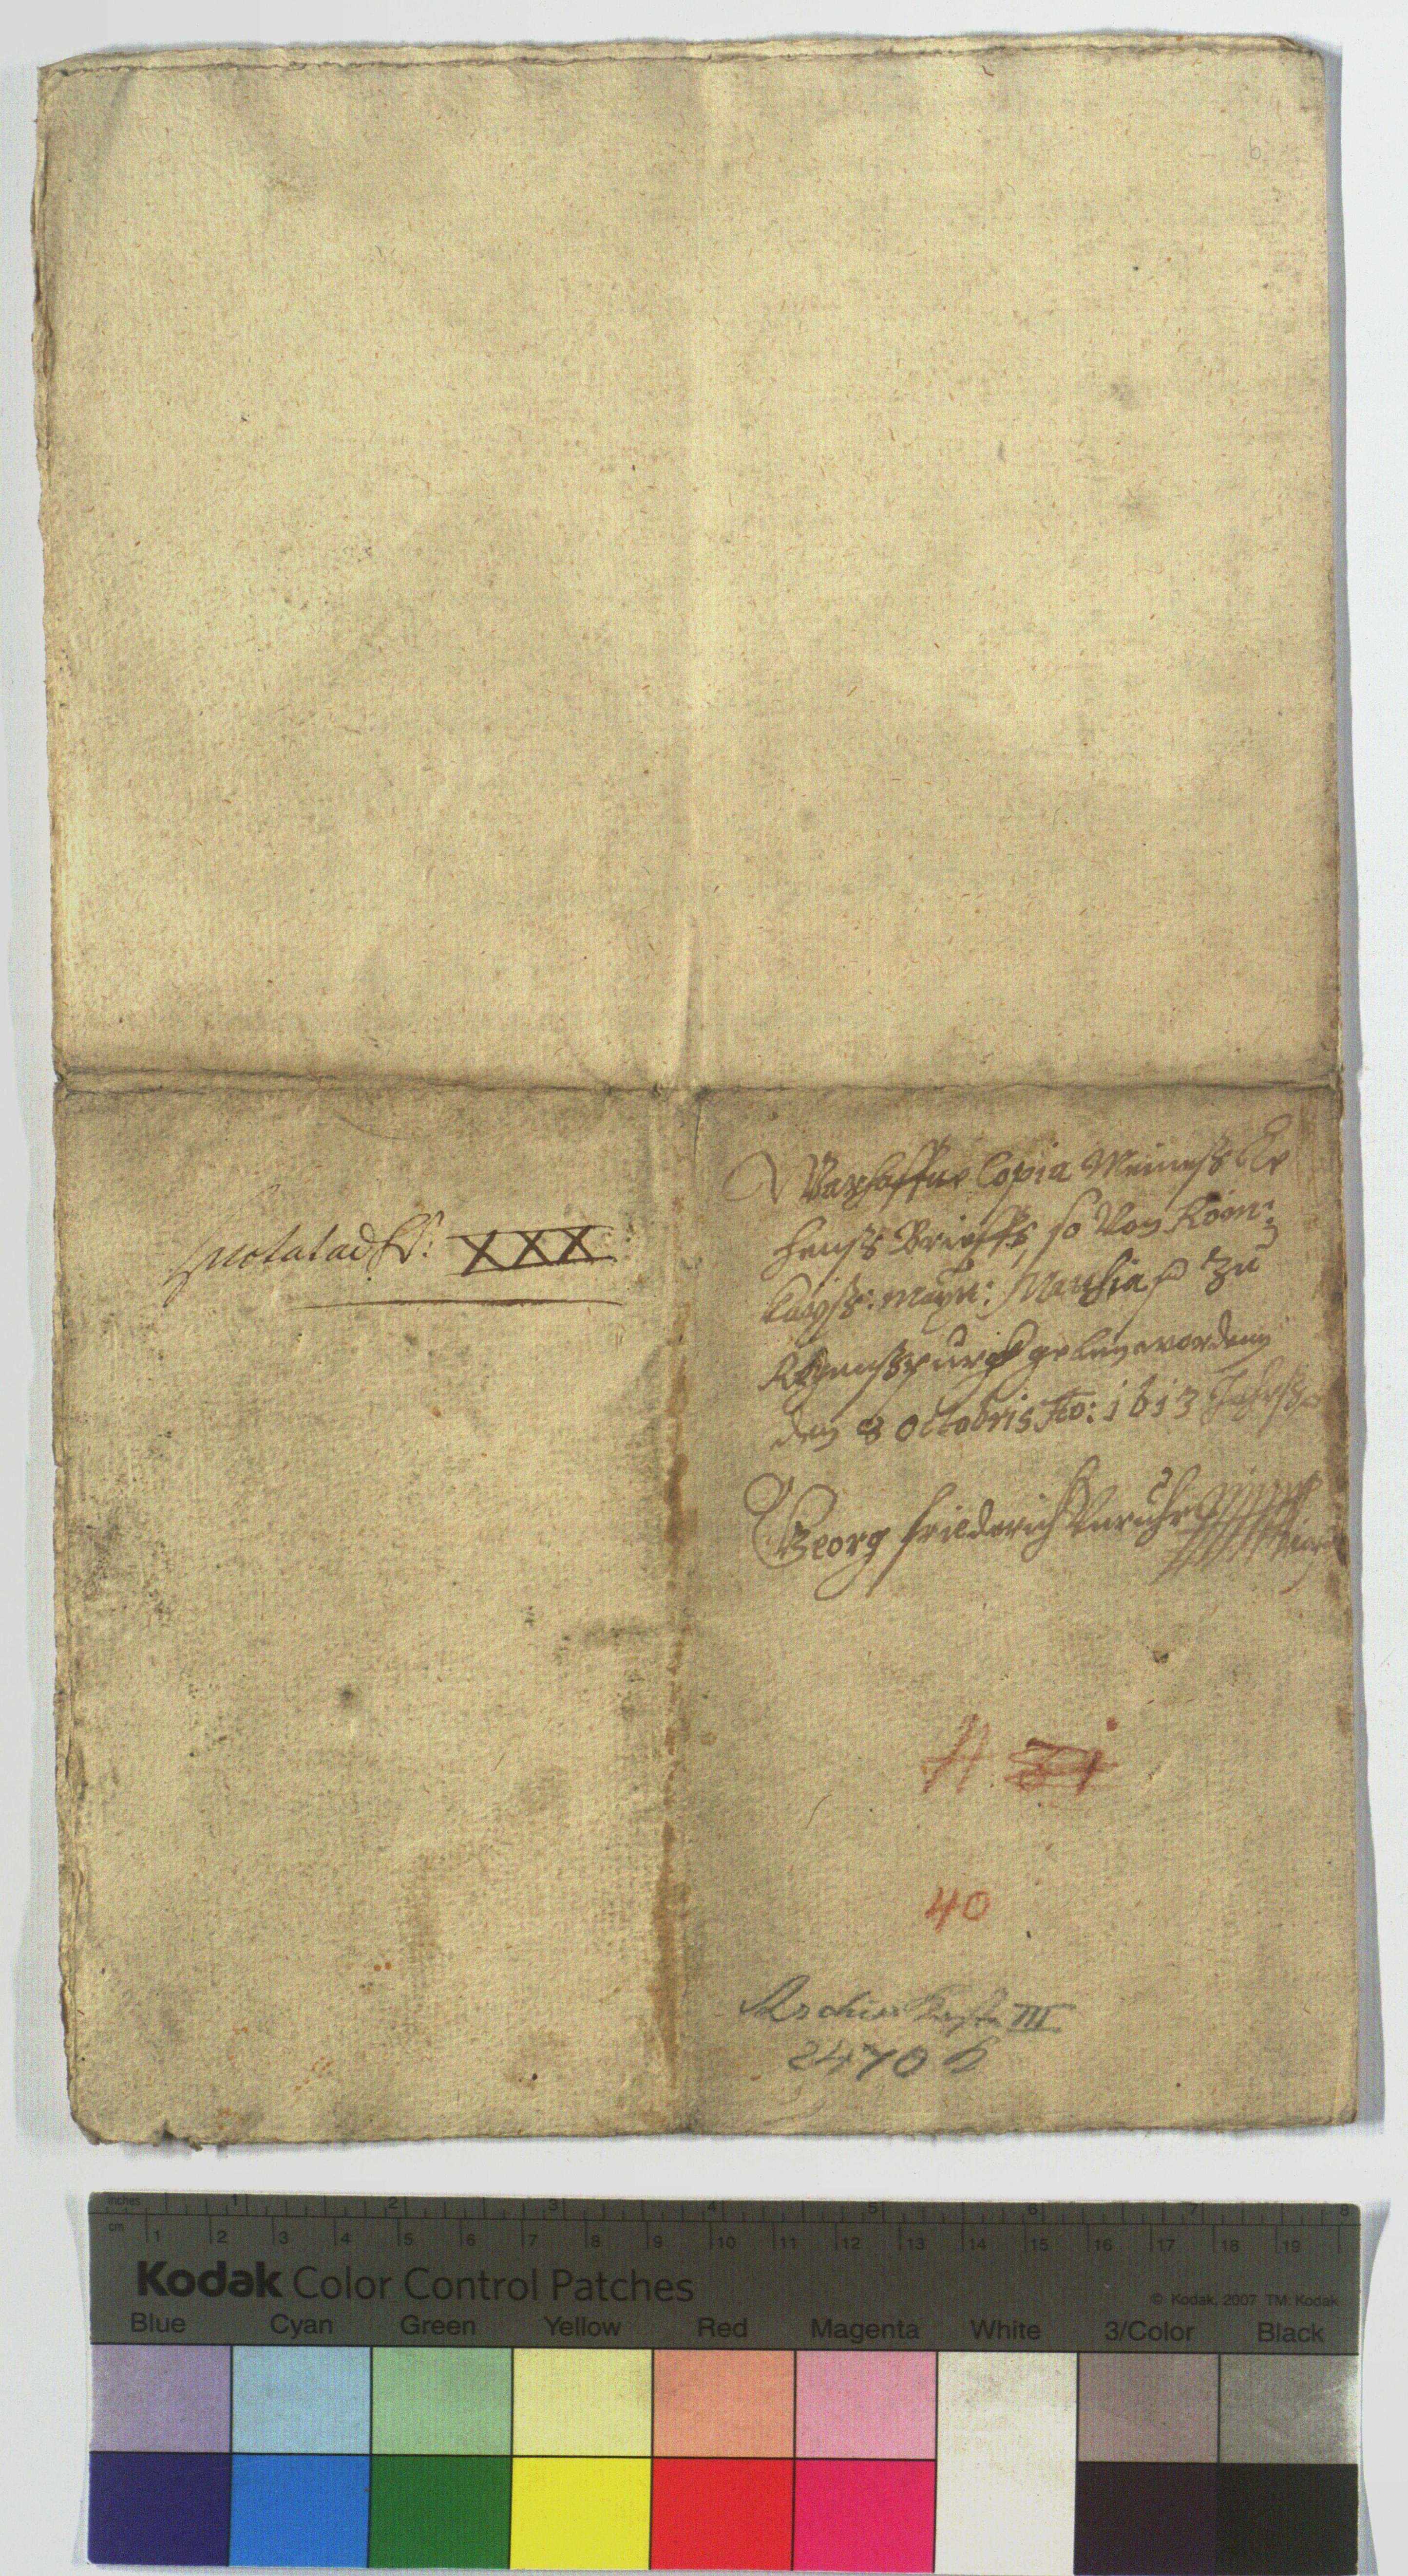 6
notata ad N: XXX
Warhaffte Copia Meineß Le
henß Brieffs, so Von Röm:
Kayß: Mayt: Mathia zu
Regenspurg geben worden
den 8 Octobris Ao: 1613
Georg Friederich
40
Archiv III
2470 b
inches 1 2 3 4 5 6 7 8
cm 1 2 3 4 5 6 7 8 9 10 11 12 13 14 15 16 17 18 19
Kodak Color Control Patches
© Kodak, 2007 TM: Kodak
Blue Cyan Green Yellow Red Magenta White 3/Color Black